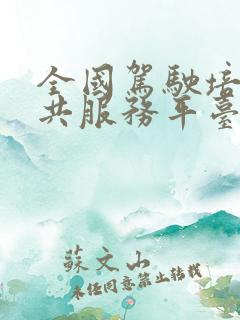 全國駕駛培
共服務平臺
蘇文山
未經同意禁止轉載